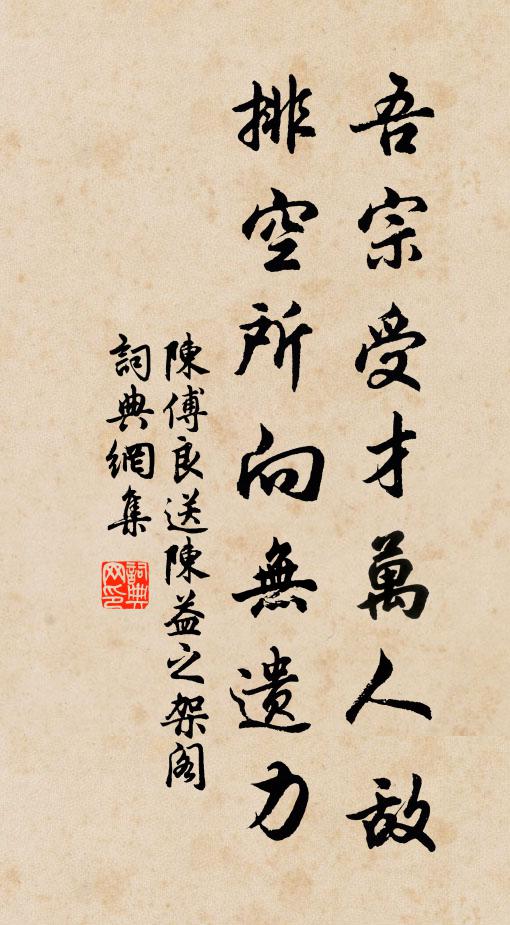 吾宗受才萬人敵
排空所向無遺力
陳傅良送陳益之架閣
詞典網集
詞典
网印